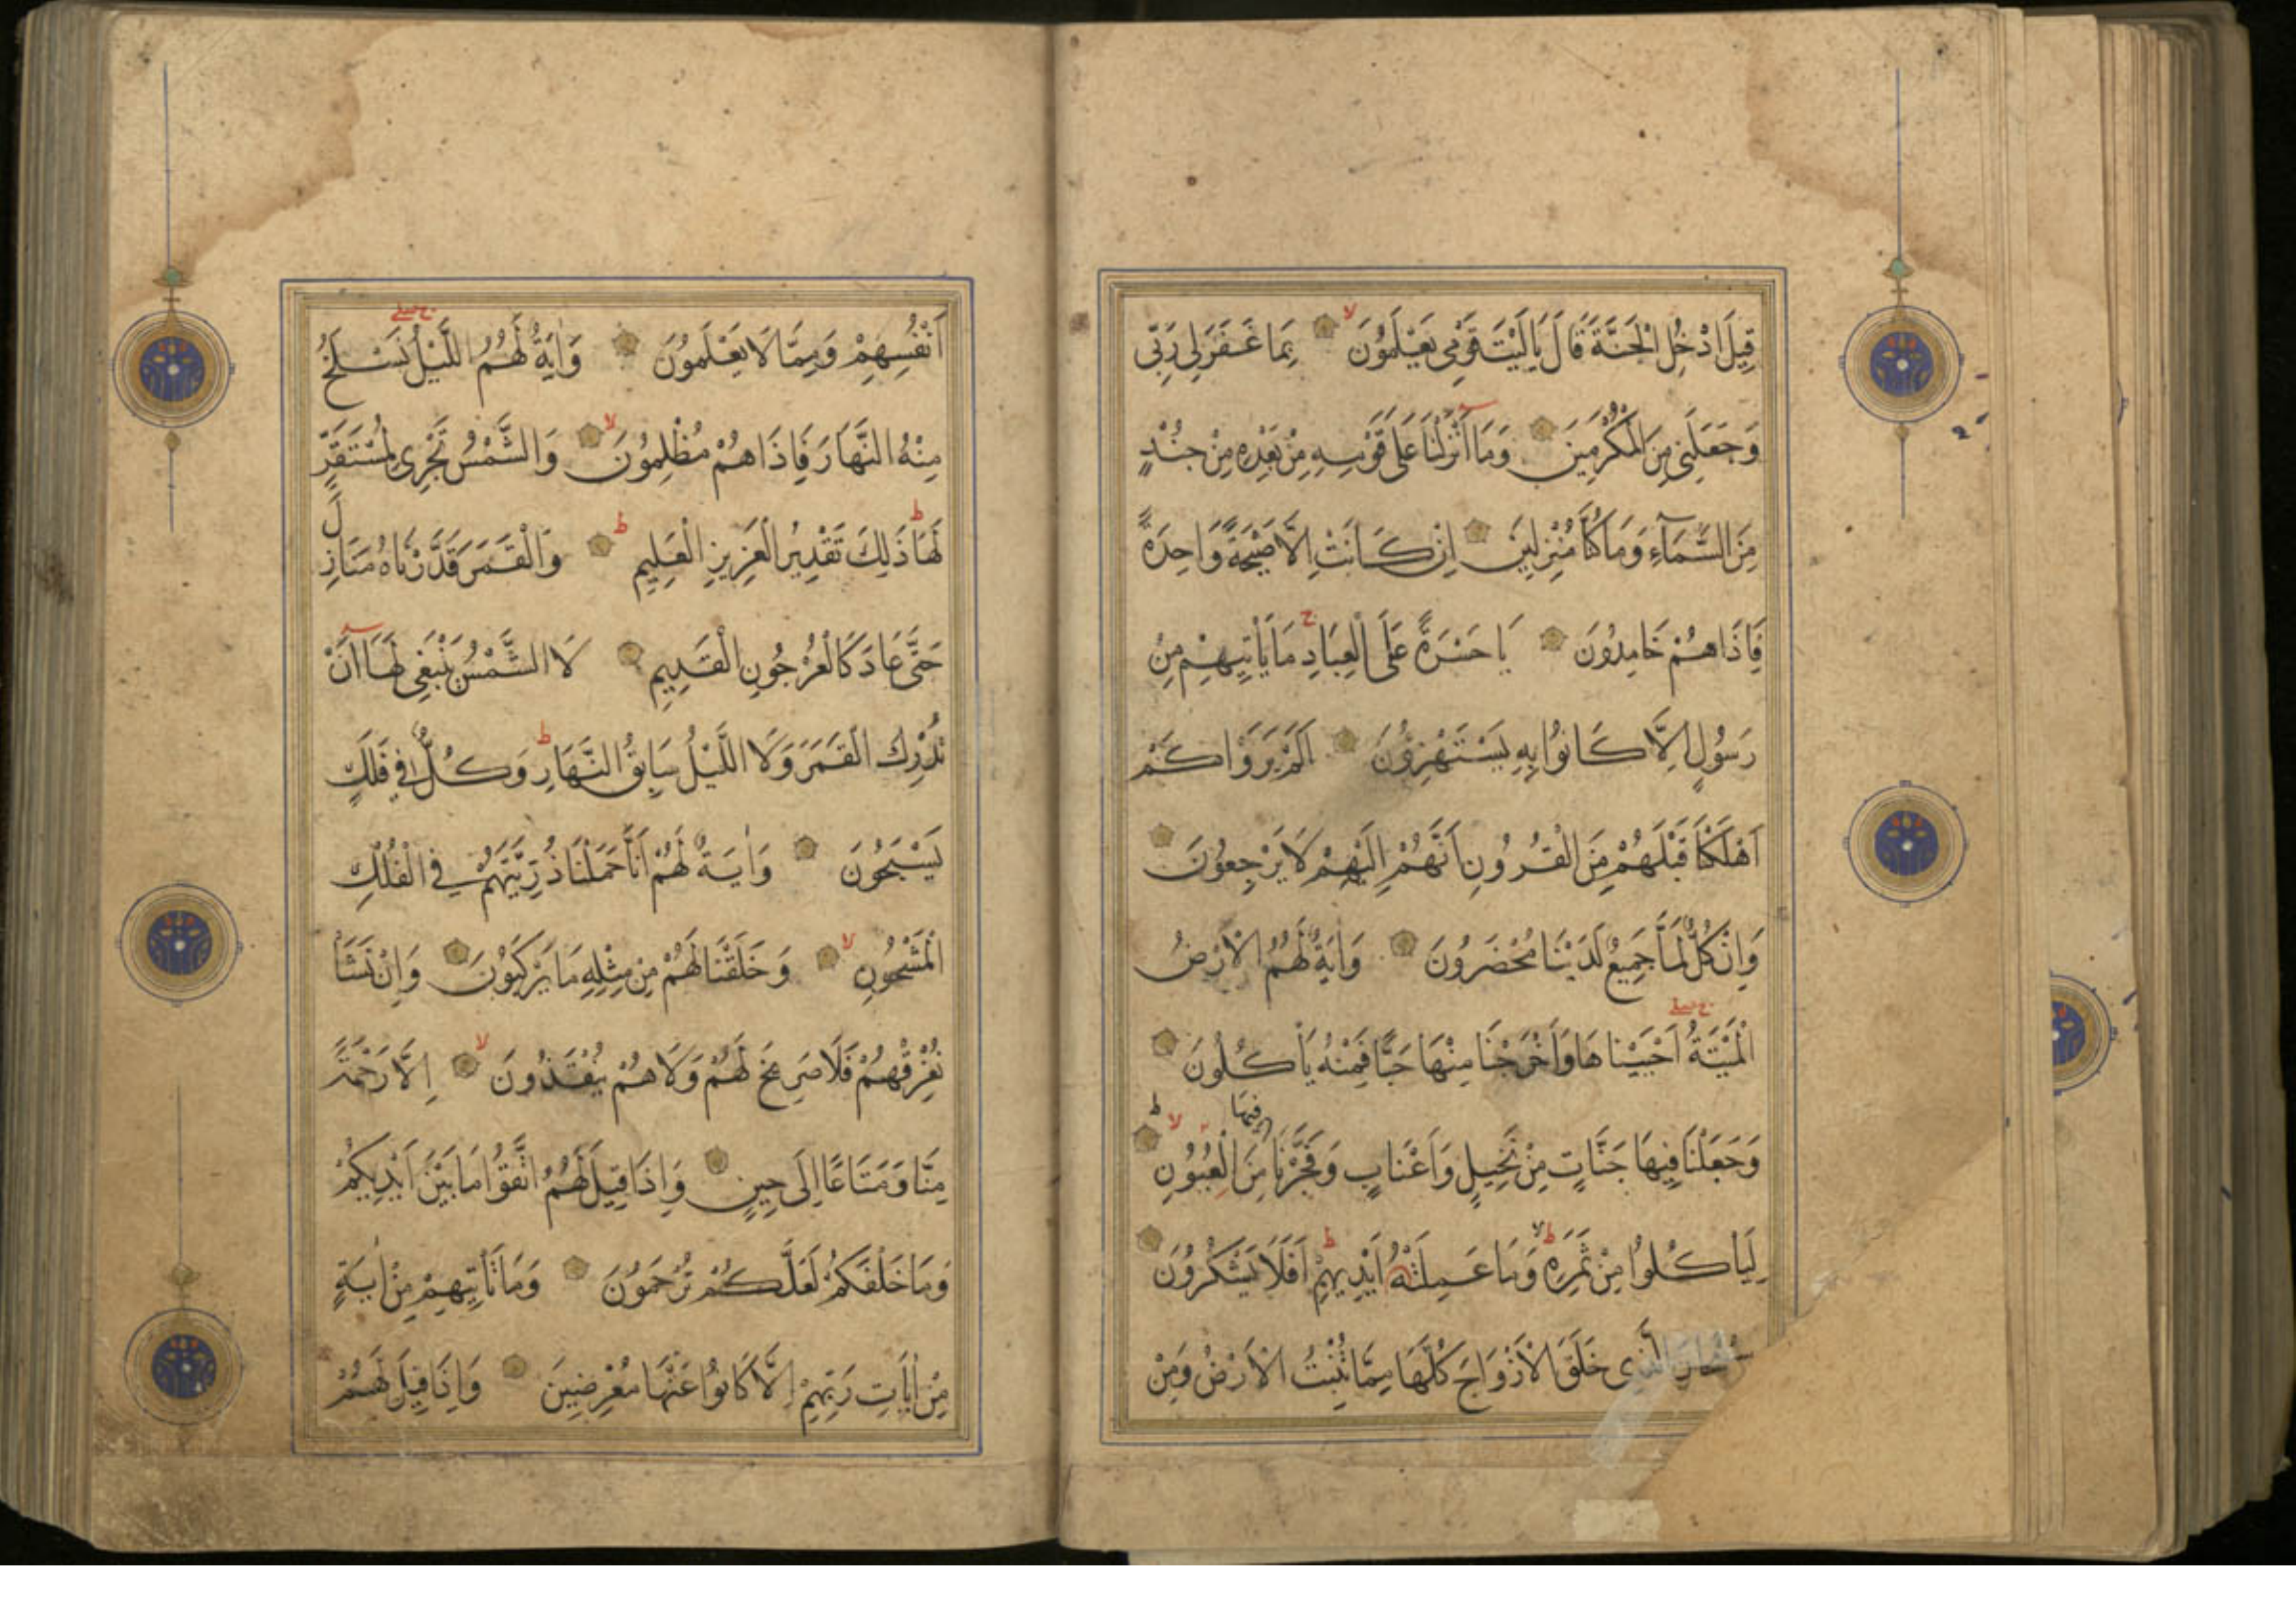 قِيلَ ادْخُلِ الْجَنَّةَ قَالَ يَالَيْتَ قَوْمِي يَعْلَمُونَ لا بِمَا غَفَرَ لِي رَبِّي
وَجَعَلَنِي مِنَ الْمُكْرَمِينَ وَمَا أَنْزَلْنَا عَلَى قَوْمِهِ مِنْ بَعْدِهِ مِنْ جُنْدٍ
مِنَ السَّمَاءِ وَمَا كُنَّا مُنْزِلِينَ اِنْ كَانَتْ اِلَّا صَيْحَةً وَاحِدَةً
فَاِذَا هُمْ خَامِدُونَ يَا حَسْرَةً عَلَى الْعِبَادِ ج مَا يَأْتِيهِمْ مِنْ
رَسُولٍ اِلَّا كَانُوا بِهِ يَسْتَهْزِؤُنَ اَلَمْ يَرَوْا كَمْ
اَهْلَكْنَا قَبْلَهُمْ مِنَ الْقُرُونِ اَنَّهُمْ اِلَيْهِمْ لَا يَرْجِعُونَ
وَاِنْ كُلٌّ لَمَّا جَمِيعٌ لَدَيْنَا مُحْضَرُونَ وَاٰيَةٌ لَهُمُ الْاَرْضُ
الْمَيْتَةُ اَحْيَيْنَاهَا وَاَخْرَجْنَا مِنْهَا حَبًّا فَمِنْهُ يَأْكُلُونَ
وَجَعَلْنَا فِيهَا جَنَّاتٍ مِنْ نَخِيلٍ وَاَعْنَابٍ وَفَجَّرْنَا فِيهَا مِنَ الْعُيُونِ لا
لِيَأْكُلُوا مِنْ ثَمَرِهِ وَمَا عَمِلَتْهُ اَيْدِيهِمْ ط اَفَلَا يَشْكُرُونَ
سُبْحَانَ الَّذِي خَلَقَ الْاَزْوَاجَ كُلَّهَا مِمَّا تُنْبِتُ الْاَرْضُ وَمِنْ
اَنْفُسِهِمْ وَمِمَّا لَا يَعْلَمُونَ وَاٰيَةٌ لَهُمُ اللَّيْلُ نَسْلَخُ
مِنْهُ النَّهَارَ فَاِذَا هُمْ مُظْلِمُونَ لا وَالشَّمْسُ تَجْرِي لِمُسْتَقَرٍّ
لَهَا ط ذَلِكَ تَقْدِيرُ الْعَزِيزِ الْعَلِيمِ ط وَالْقَمَرَ قَدَّرْنَاهُ مَنَازِلَ
حَتَّى عَادَ كَالْعُرْجُونِ الْقَدِيمِ لَا الشَّمْسُ يَنْبَغِي لَهَا اَنْ
تُدْرِكَ الْقَمَرَ وَلَا اللَّيْلُ سَابِقُ النَّهَارِ ط وَكُلٌّ فِي فَلَكٍ
يَسْبَحُونَ وَاٰيَةٌ لَهُمْ اَنَّا حَمَلْنَا ذُرِّيَّتَهُمْ فِي الْفُلْكِ
الْمَشْحُونِ لا وَخَلَقْنَا لَهُمْ مِنْ مِثْلِهِ مَا يَرْكَبُونَ وَاِنْ نَشَأْ
نُغْرِقْهُمْ فَلَا صَرِيخَ لَهُمْ وَلَا هُمْ يُنْقَذُونَ لا اِلَّا رَحْمَةً
مِنَّا وَمَتَاعًا اِلَى حِينٍ وَاِذَا قِيلَ لَهُمُ اتَّقُوا مَا بَيْنَ اَيْدِيكُمْ
وَمَا خَلْفَكُمْ لَعَلَّكُمْ تُرْحَمُونَ وَمَا تَأْتِيهِمْ مِنْ اٰيَةٍ
مِنْ اٰيَاتِ رَبِّهِمْ اِلَّا كَانُوا عَنْهَا مُعْرِضِينَ وَاِذَا قِيلَ لَهُمْ